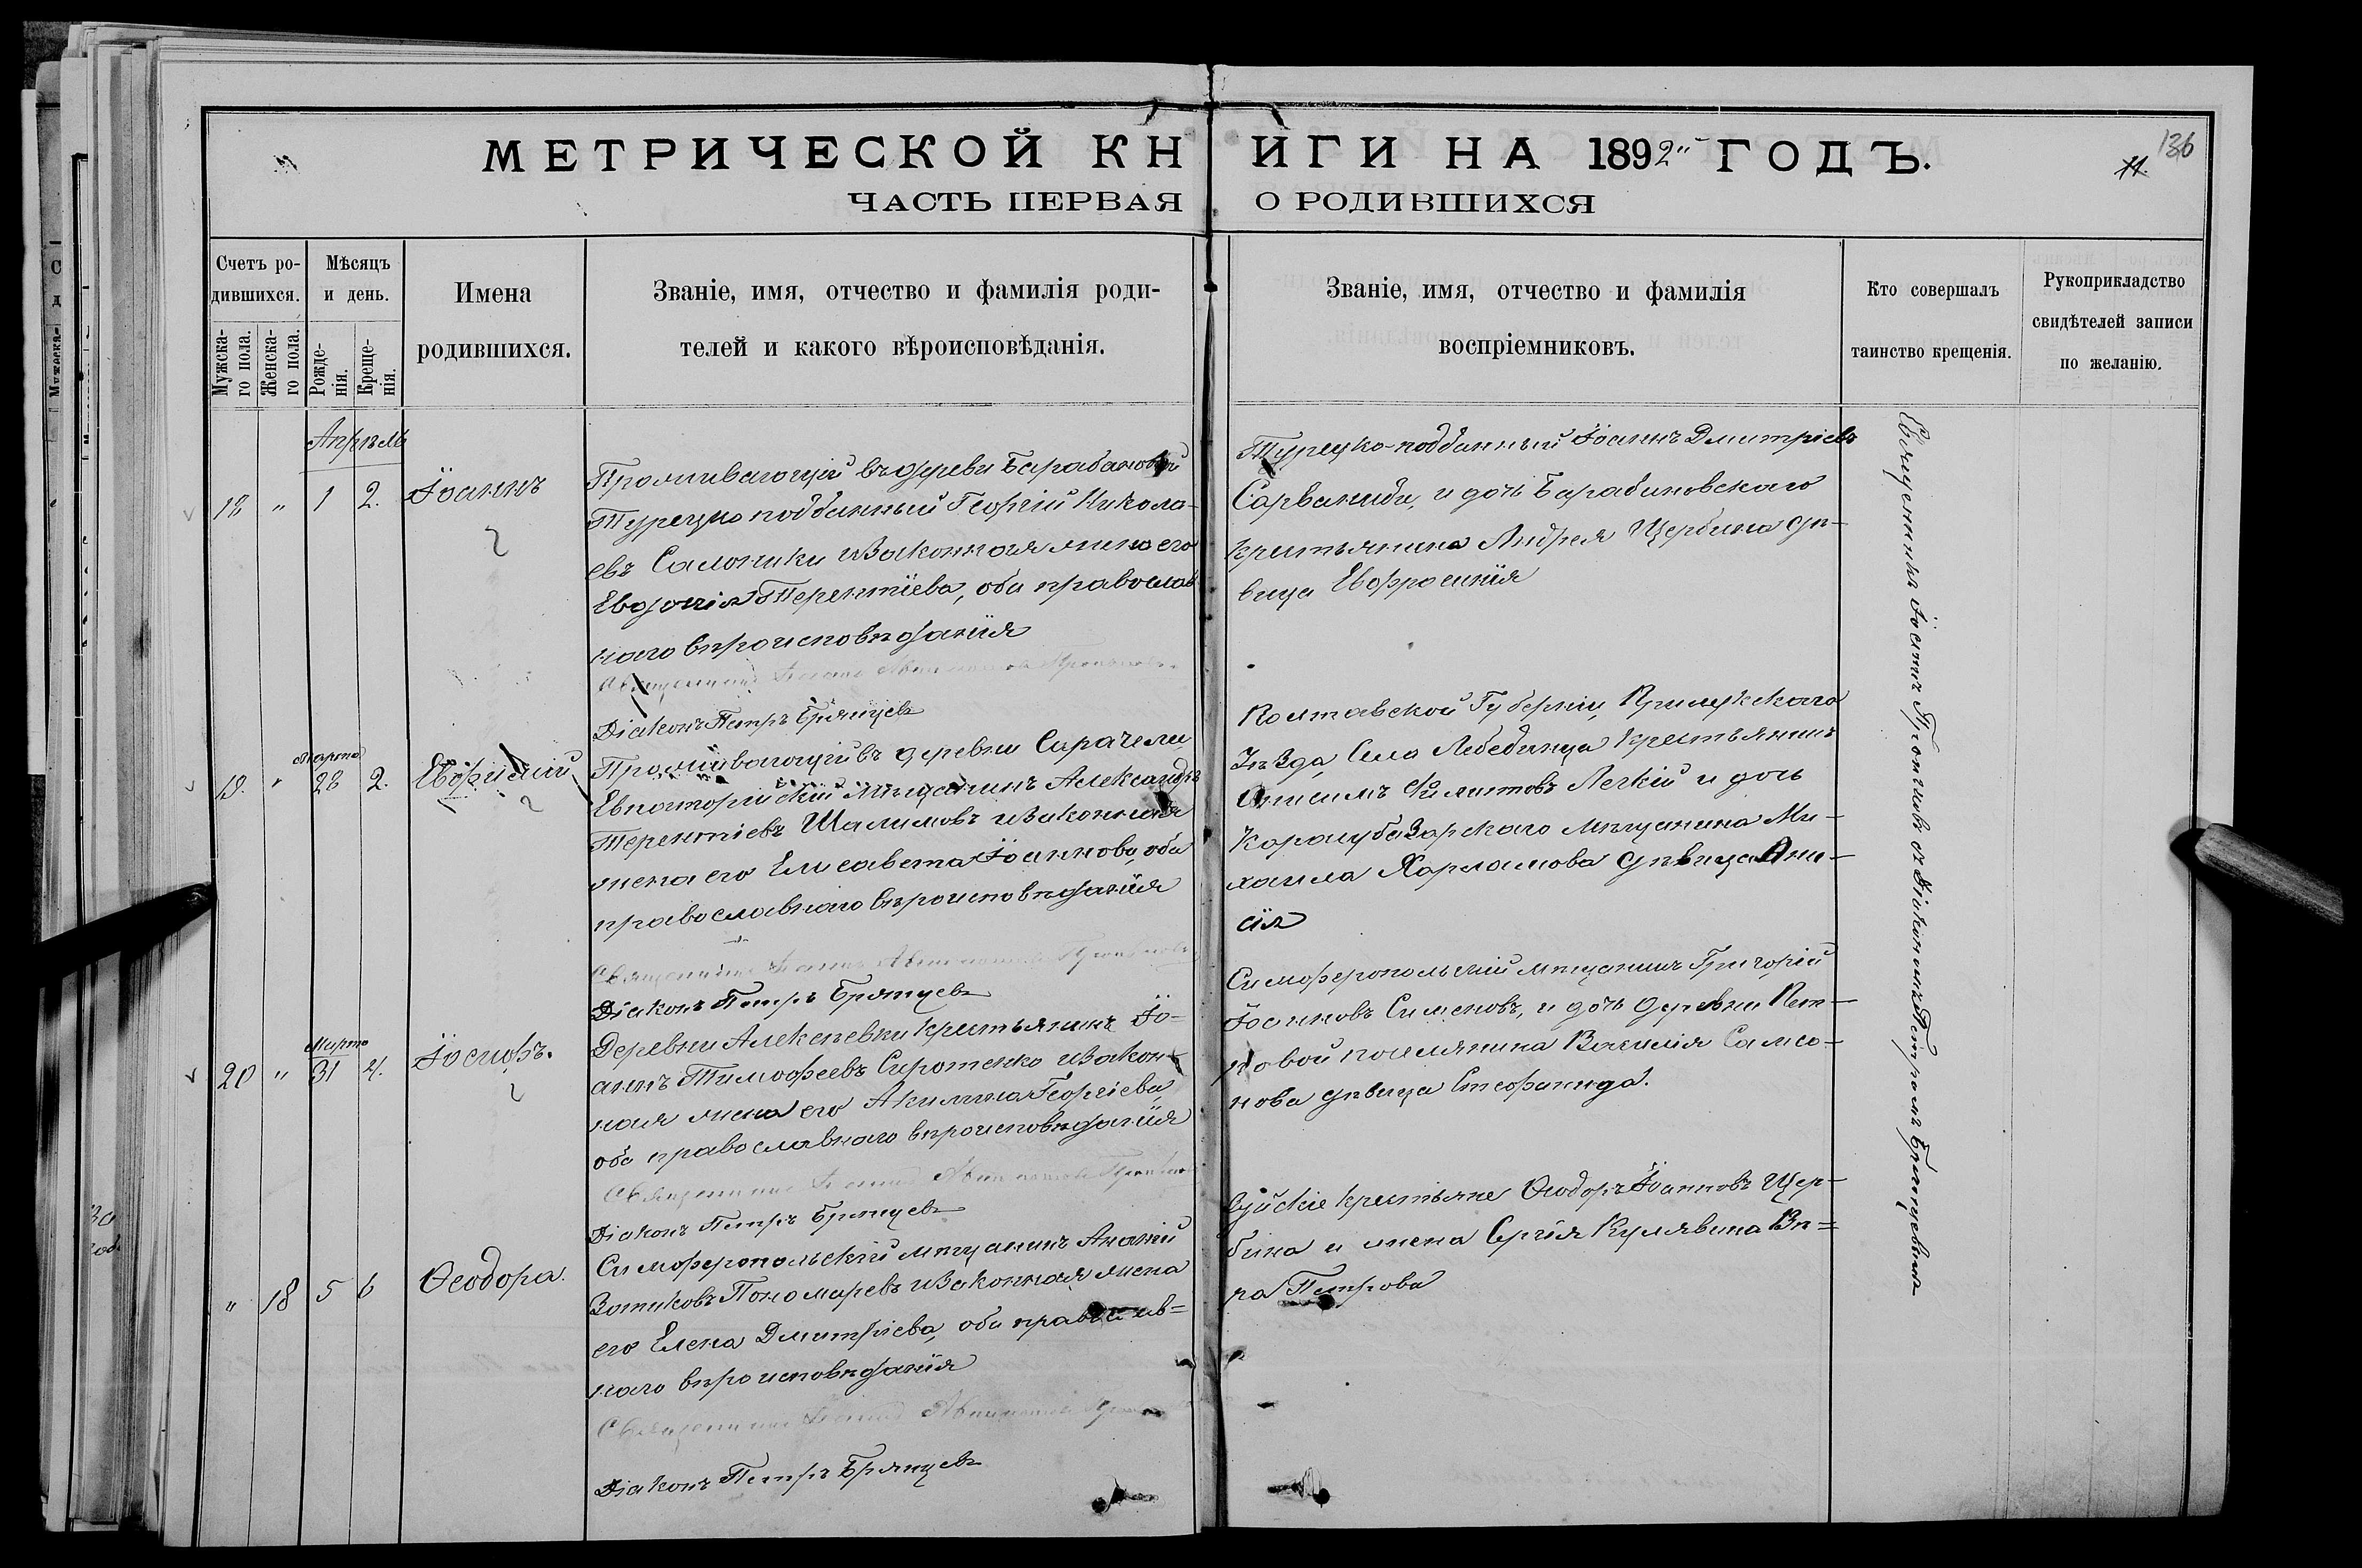 МЕТРИЧЕСКОЙ КНИГИ НА 1892 ГОДЪ.
136
11.
ЧАСТЬ ПЕРВАЯ О РОДИВШИХСЯ
Счетъ ро-
дившихся.
Мужска-
го пола.
Женска-
го пола.
Мѣсяцъ
и день.
Рожде-
нія.
Креще-
нія.
Имена
родившихся.
Званіе, имя, отчество и фамилія роди-
телей и какого вѣроисповѣданія.
Званіе, имя, отчество и фамилія
воспріемниковъ.
Кто совершалъ
таинство крещенія.
Рукоприкладство
свидѣтелей записи
по желанію.
Апрѣль
18 " 1 2. Іоаннъ
Проживающій въ деревни Барабановкѣ
Турецко подданный Георгій Никола-
евъ Салоники и законная жена его
Евдокія Терентіева, оба православ
наго вѣроисповѣданія
Священникъ Іоаннъ
Діаконъ Петръ Брянцевъ
Турецко-подданный Іоаннъ Дмитріевъ
Сарваниди, и дочь Барабановскаго
крестьянина Андрея Щербина дѣ-
вица Евфросинія
Марта
19. " 28 2. Евфимій
Проживающій въ деревни Сарачели
Евпаторійскій Мѣщанинъ Александръ
Терентіевъ Шалимовъ и законная
жена его Елисавета Іоаннова, оба
православнаго вѣроисповѣданія
Священникъ Іоаннъ
Діаконъ Петръ Брянцевъ
Полтавской Губерніи, Прилукскаго
Уѣзда, Села Лебединца Крестьянинъ
Онисимъ Филиповъ Легкій и дочь
Карасубазарскаго Мѣщанина Ми-
хаила Харламова дѣвица Ани-
сія
Марта
20 " 31 4. Іосифъ.
Деревни Алексѣевки крестьянинъ Іо-
аннъ Тимофеевъ Сиротенко и закон-
ная жена его Акилина Георгіева,
оба православнаго вѣроисповѣданія
Священникъ Іоаннъ
Діаконъ Петръ Брянцевъ
Симферопольскій мѣщанинъ Григорій
Іоанновъ Сименовъ, и дочь деревни Пет-
ровой поселянина Василія Самсо-
нова дѣвица Стефанида.
" 18 5 6 Ѳеодора.
Симферопольскій мѣщанинъ Ананій
Зотиковъ Пономаревъ и законная жена
его Елена Дмитріева, оба православ=
наго вѣроисповѣданія
Священникъ Іоаннъ
Діаконъ Петръ Брянцевъ
Зуйскіе крестьяне Ѳеодоръ Іоанновъ Щер-
бина и жена Сергія Кулявина Вѣ=
ра Петрова
Священникъ Іоаннъ съ Діакономъ Петромъ Брянцевымъ